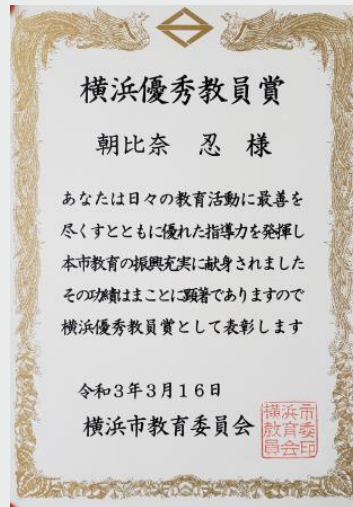 横浜優秀教員賞
朝比奈 忍 様
あなたは日々の教育活動に最善を
尽くすとともに優れた指導力を発揮し
本市教育の振興充実に献身されました
その功績はまことに顕著でありますので
横浜優秀教員賞として表彰します
令和3年3月16日
横浜市教育委員会
横浜市教育委員会印